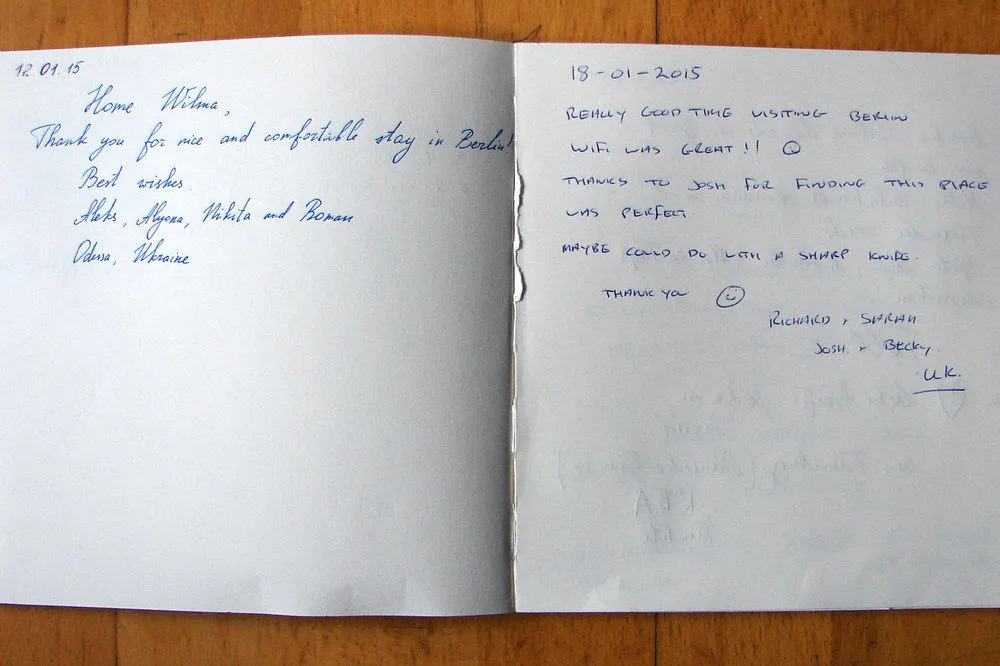 12.01.15
Home Wilma,
Thank you for nice and comfortable stay in Berlin!
Best wishes.
Aleks, Alyona, Nikita and Roman
Odessa, Ukraine
18-01-2015
REALLY GOOD TIME VISITING BERLIN
WIFI WAS GREAT!! ☺
THANKS TO JOSH FOR FINDING THIS PLACE
WAS PERFECT.
MAYBE COULD DO WITH A SHARP KNIFE.
THANK YOU ☺
RICHARD + SARAH
JOSH + BECKY.
UK.